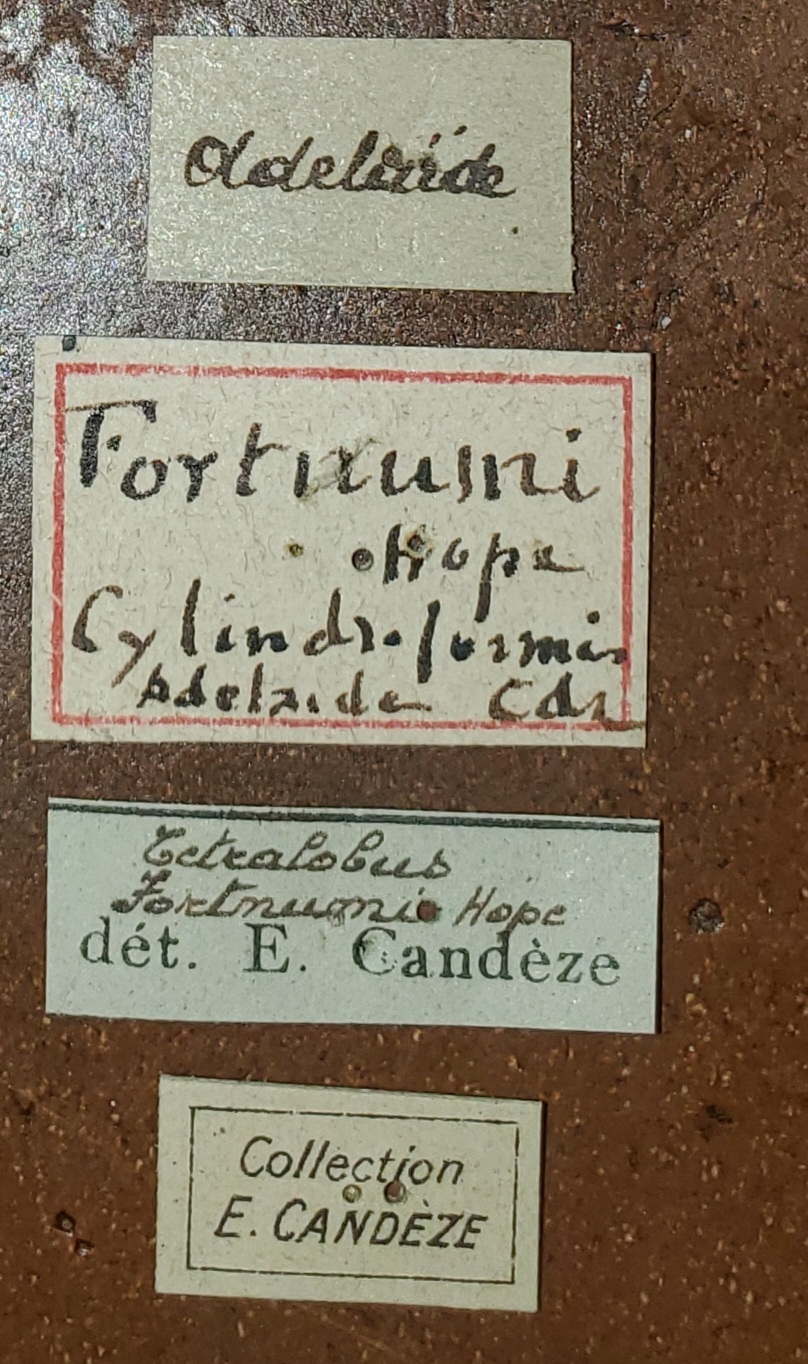 Adelaïde
Fortnumi
Hope
Cylindriformis
Adelaide Cdz
Tetralobus
Fortnumi Hope
dét. E. Candèze
Collection
E. CANDÈZE